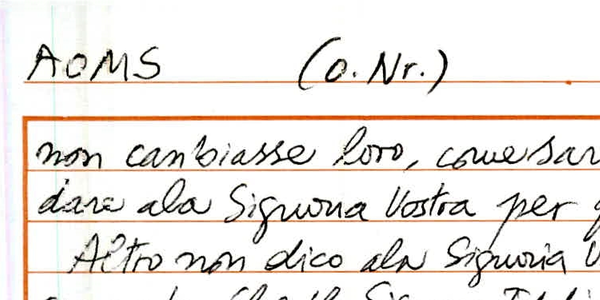 AOMS (O. Nr.)
non canbiasse loro, come sar
dare ala Signoria Vostra per
Altro non dico ala Signoria V